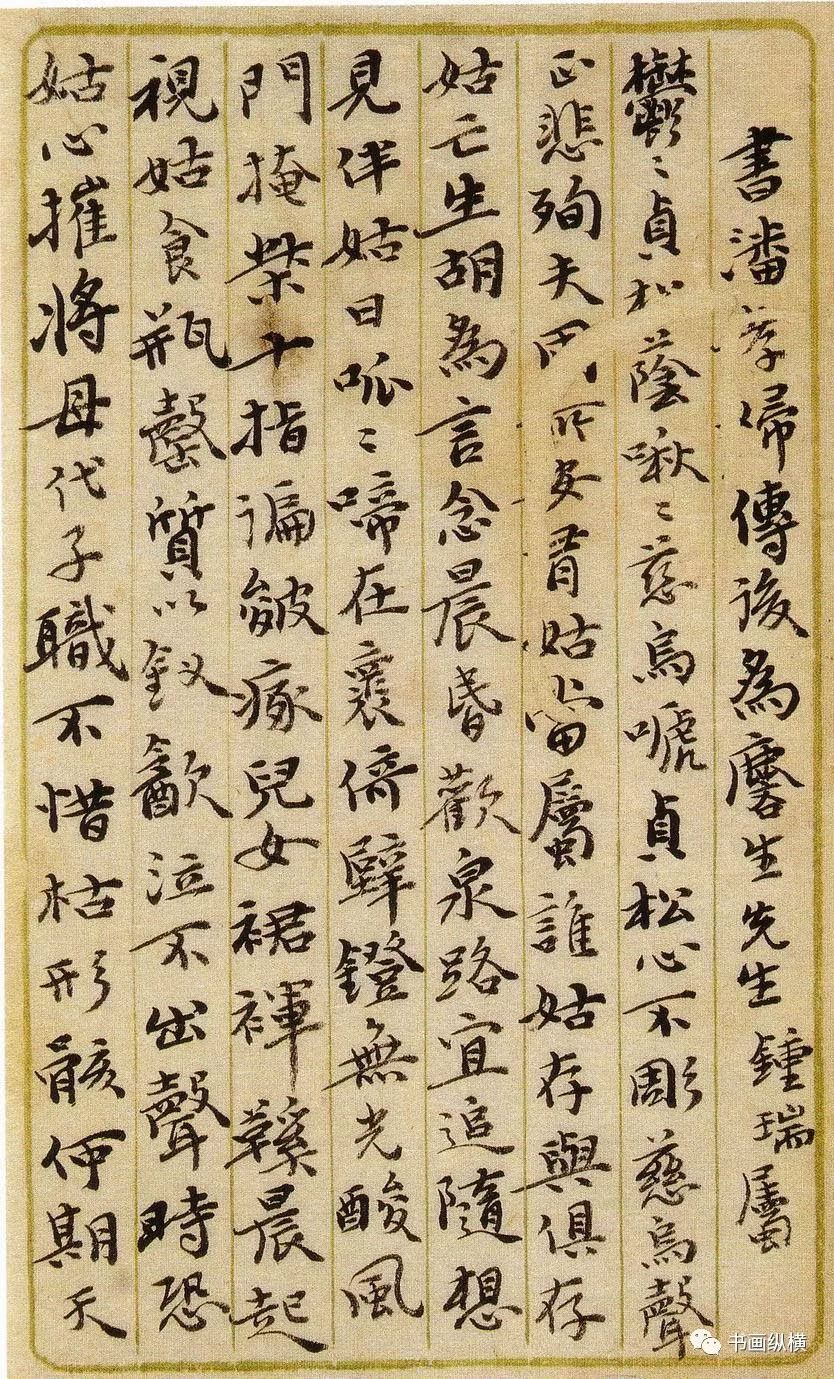 書潘孝婦傳後為麐生先生鍾瑞屬
鬱〻貞松蔭啾〻慈烏號貞松心不彫慈烏聲
正悲殉夫所安耆姑當屬誰姑存與俱存
姑亡生胡為言念晨昏歡泉路宜追隨想
見伴姑日呱〻啼在裏倚壁鐙無光酸風
門掩柴十指徧皴瘃兒女裙褌鞵晨起
視姑食瓶罄質以釵歠泣不出聲時恐
姑心摧將母代子職不惜枯形骸何期天
书画纵横